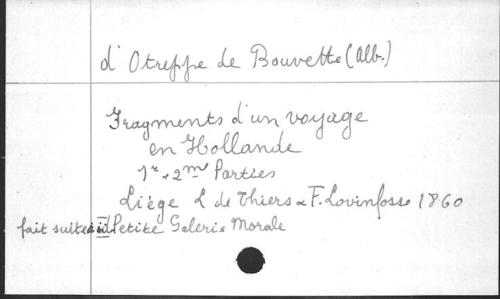 d'Otreppe de Bouvette (Alb.)
Fragments d'un voyage
en Hollande
1re & 2me Parties
Liège L de Thiers & F. Lovinfosse 1860
fait suite à Petite Galerie Morale